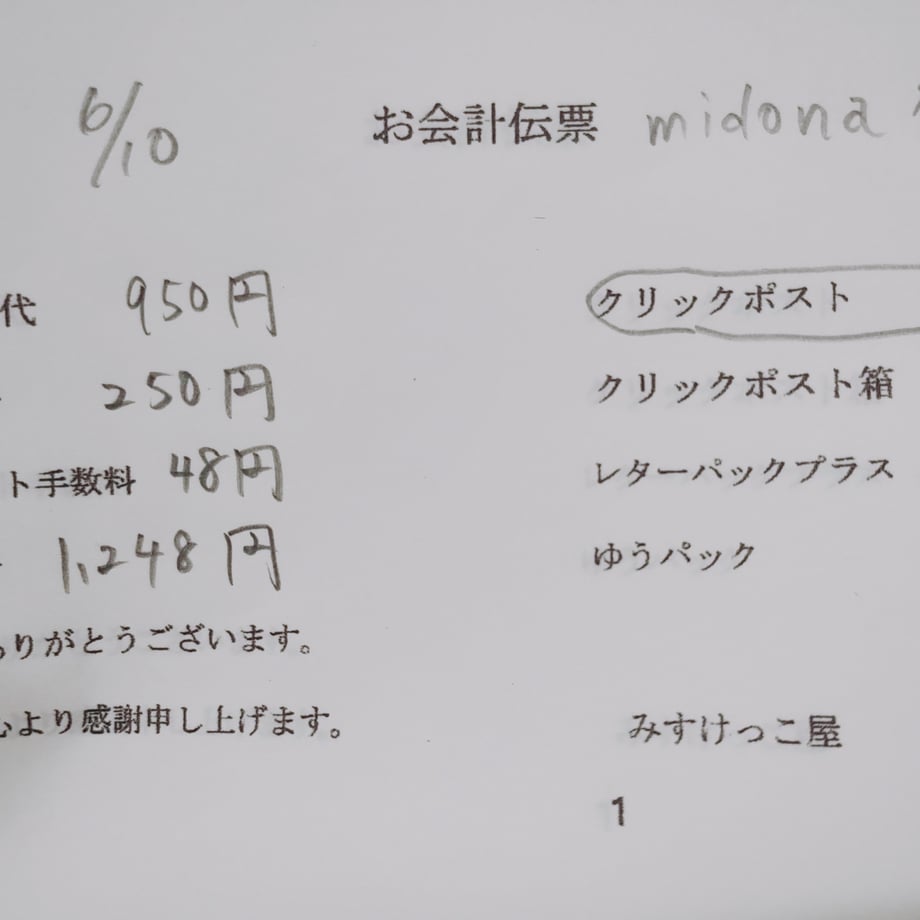 6/10 お会計伝票 midona
代 950円
250円
ト手数料 48円
1,248円
りがとうございます。
より感謝申し上げます。
クリックポスト
クリックポスト箱
レターパックプラス
ゆうパック
みすけっこ屋
1